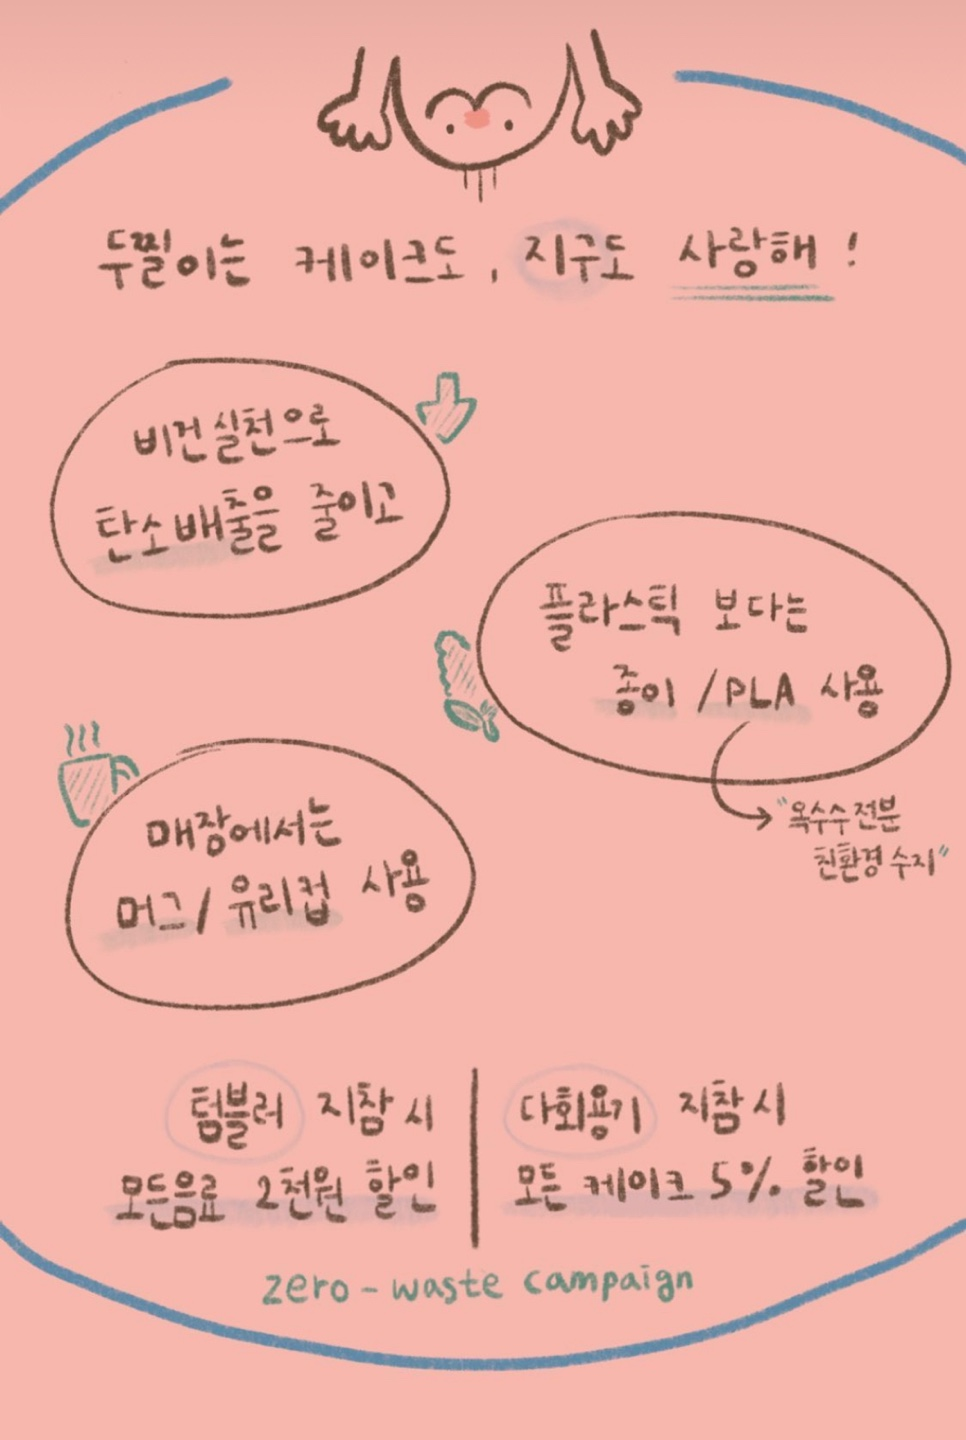 두찔이는 케이크도, 지구도 사랑해!
비건실천으로
탄소배출을 줄이고
플라스틱 보다는
종이 / PLA 사용
"옥수수전분
친환경 수지"
매장에서는
머그/유리컵 사용
텀블러 지참 시
모든음료 2천원 할인
다회용기 지참 시
모든 케이크 5% 할인
zero-waste campaign